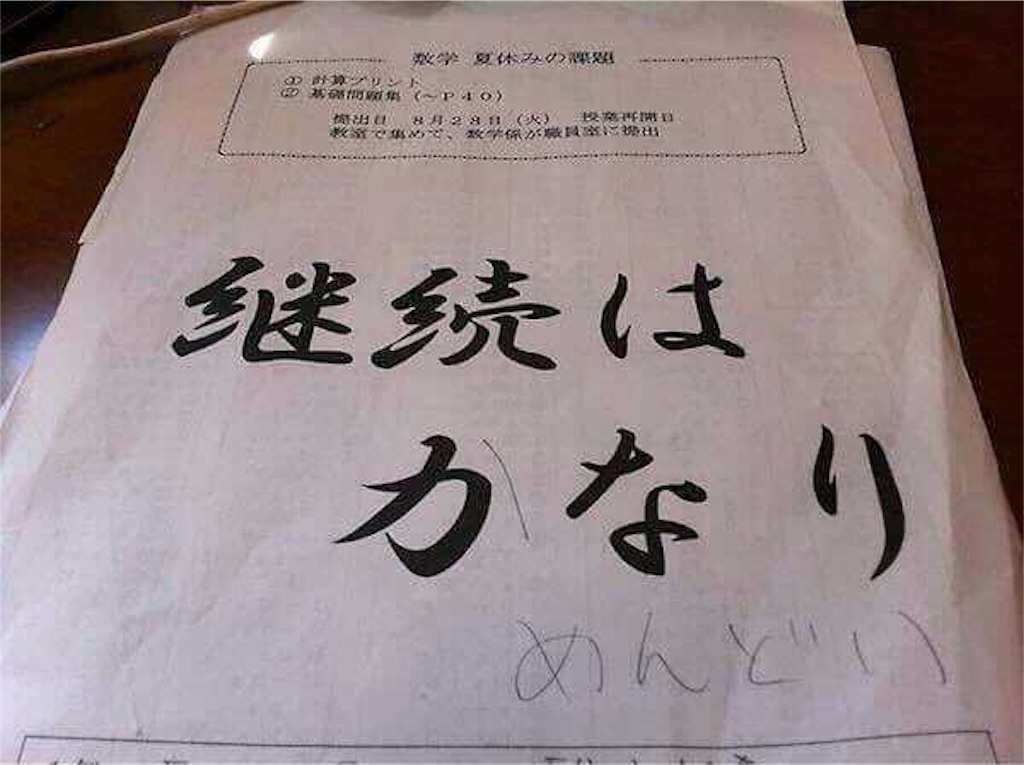 数学 夏休みの課題
① 計算プリント
② 基礎問題集（～P４０）
提出日 ８月２８日（火） 授業再開日
教室で集めて、数学係が職員室に提出
継続は
かなり
めんどい